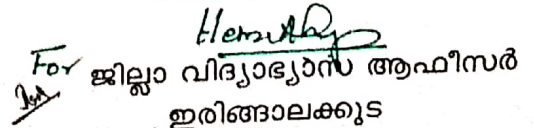 For ജില്ലാ വിദ്യാഭ്യാസ ആഫീസർ
ഇരിങ്ങാലക്കുട